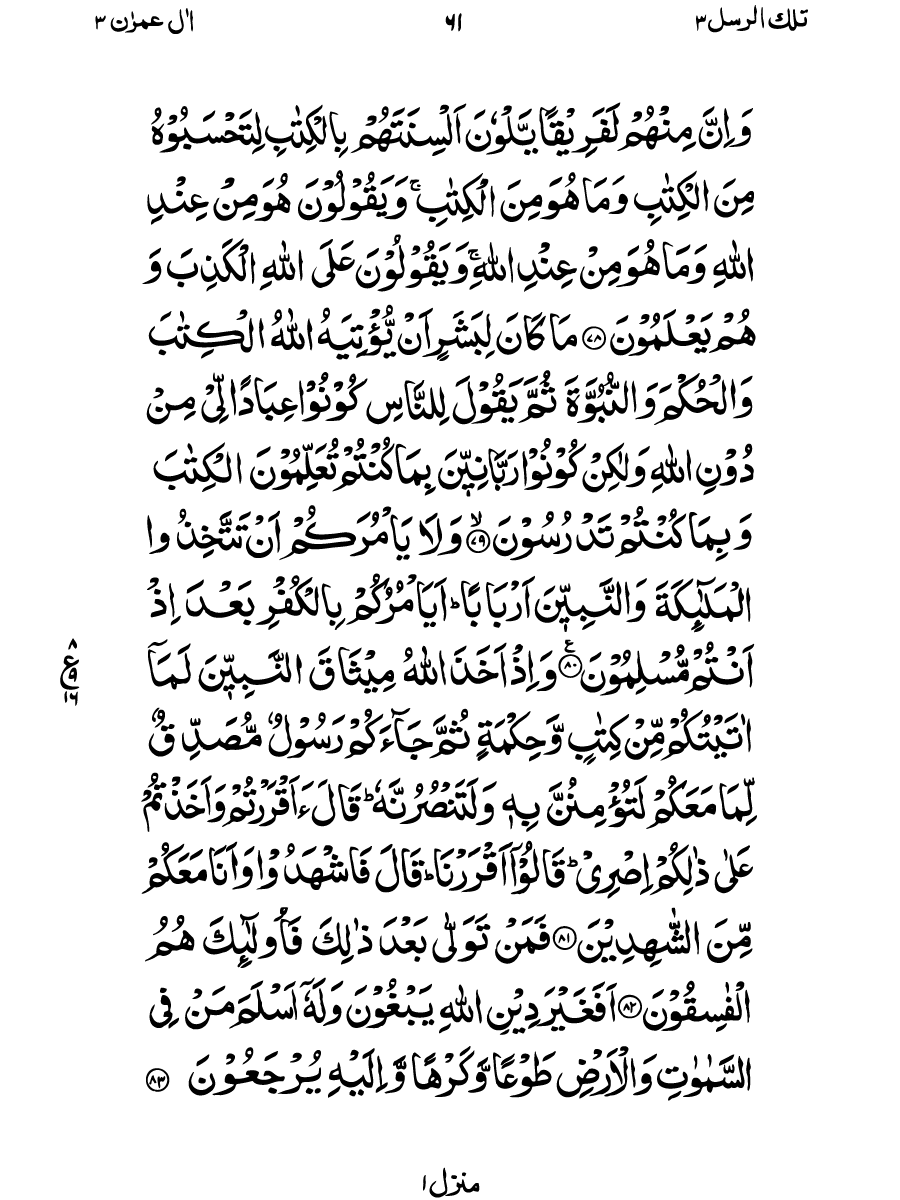 تلك الرسل ۳ ۶۱ اٰل عمرٰن ۳
وَاِنَّ مِنْهُمْ لَفَرِيْقًا يَّلْوٗنَ اَلْسِنَتَهُمْ بِالْكِتٰبِ لِتَحْسَبُوْهُ
مِنَ الْكِتٰبِ وَمَا هُوَ مِنَ الْكِتٰبِ ۚ وَيَقُوْلُوْنَ هُوَ مِنْ عِنْدِ
اللّٰهِ وَمَا هُوَ مِنْ عِنْدِ اللّٰهِ ۚ وَيَقُوْلُوْنَ عَلَى اللّٰهِ الْكَذِبَ وَ
هُمْ يَعْلَمُوْنَ ۝۷۸ مَا كَانَ لِبَشَرٍ اَنْ يُّؤْتِيَهُ اللّٰهُ الْكِتٰبَ
وَالْحُكْمَ وَالنُّبُوَّةَ ثُمَّ يَقُوْلَ لِلنَّاسِ كُوْنُوْا عِبَادًا لِّيْ مِنْ
دُوْنِ اللّٰهِ وَلٰكِنْ كُوْنُوْا رَبّٰنِيّٖنَ بِمَا كُنْتُمْ تُعَلِّمُوْنَ الْكِتٰبَ
وَبِمَا كُنْتُمْ تَدْرُسُوْنَ ۝۷۹ۙ وَلَا يَاْمُرَكُمْ اَنْ تَتَّخِذُوا
الْمَلٰٓئِكَةَ وَالنَّبِيّٖنَ اَرْبَابًا ؕ اَيَاْمُرُكُمْ بِالْكُفْرِ بَعْدَ اِذْ
اَنْتُمْ مُّسْلِمُوْنَ ۝۸۰ۧ وَاِذْ اَخَذَ اللّٰهُ مِيْثَاقَ النَّبِيّٖنَ لَمَاۤ
۸ ع ۹ ۱۶
اٰتَيْتُكُمْ مِّنْ كِتٰبٍ وَّحِكْمَةٍ ثُمَّ جَآءَكُمْ رَسُوْلٌ مُّصَدِّقٌ
لِّمَا مَعَكُمْ لَتُؤْمِنُنَّ بِهٖ وَلَتَنْصُرُنَّهٗ ؕ قَالَ ءَاَقْرَرْتُمْ وَاَخَذْتُمْ
عَلٰى ذٰلِكُمْ اِصْرِيْ ؕ قَالُوْۤا اَقْرَرْنَا ؕ قَالَ فَاشْهَدُوْا وَاَنَا مَعَكُمْ
مِّنَ الشّٰهِدِيْنَ ۝۸۱ فَمَنْ تَوَلّٰى بَعْدَ ذٰلِكَ فَاُولٰٓئِكَ هُمُ
الْفٰسِقُوْنَ ۝۸۲ اَفَغَيْرَ دِيْنِ اللّٰهِ يَبْغُوْنَ وَلَهٗۤ اَسْلَمَ مَنْ فِي
السَّمٰوٰتِ وَالْاَرْضِ طَوْعًا وَّكَرْهًا وَّاِلَيْهِ يُرْجَعُوْنَ ۝۸۳
منزل ۱